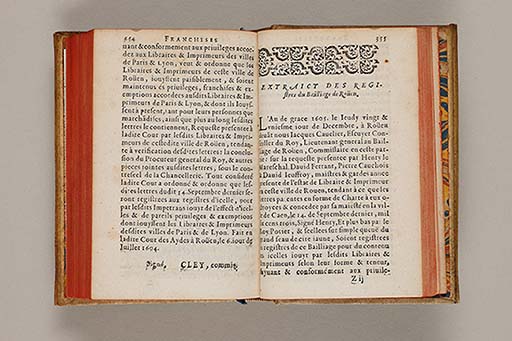 554 FRANCHISES
uant & conformement aux priuileges accor-
dez aux Libraires & Imprimeurs des villes
de Paris & Lyon, veut & ordonne que les
Libraires & Imprimeurs de ceste ville de
Roüen, iouyssent paisiblement, & soient
maintenus és priuileges, franchises & ex-
emptions accordees ausdits Libraires & Im-
primeurs de Paris & Lyon, & dont ils iouys-
sent à present, tant pour leurs personnes que
marchādises, ainsi que plus au long lesdites
lettres le contiennent, Requeste presentée à
ladite Cour par lesdits Libraires & Impri-
meurs de cestedite ville de Roüen, tendan-
te à verification desdites lettres: la conclu-
sion du Procureur general du Roy, & autres
pieces iointes ausdites lettres, sous le con-
tresel de la Chancellerie. Tout consideré
ladite Cour a ordonné & ordonne que les-
dites lettres dudit 14. Septembre dernier se-
ront registrees aux registres d'icelle, pour
par lesdits Impetrans iouyr de l'effect d'icel-
les & de pareils priuileges & exemptions
dont iouyssent les Libraires & Imprimeurs
desdites villes de Paris & de Lyon. Fait en
ladite Cour des Aydes à Roüen, le 6. iour de
Iuillet 1604.
Signé, CLEY, commis.
555
EXTRAICT DES REGI-
stres du Bailliage de Roüen.
L'An de grace 1605. le Ieudy vingt &
vniesme iour de Decembre, à Roüen
deuant nous Iacques Cauelier, Escuyer Con-
seiller du Roy, Lieutenant general au Bail-
liage de Roüen, Commissaire en ceste par-
tie sur la requeste presentee par Henry le
Mareschal, Dauid Ferrant, Pierre Cauchois
& Dauid Ieuffroy, maistres & gardes annees
presente de l'estat de Libraire & Imprimeur
en ceste ville de Roüen, tendant à ce que les
lettres patentes en forme de Charte à eux o-
ctroyees & concedee par sa maiesté en la vil-
le de Caen, le 14. de Septembre dernier, mil
six cens trois, Signé Henry, Et plus bas par le
Roy Potier, & scellees sur simple queuë du
grand seau de cire iaune, Soient registrees
és registres de ce Bailliage pour du contenu
en icelles iouyr par lesdits Libraires &
Imprimeurs selon leur forme & teneur,
suyuant & conformément aux priuile-
Z ij